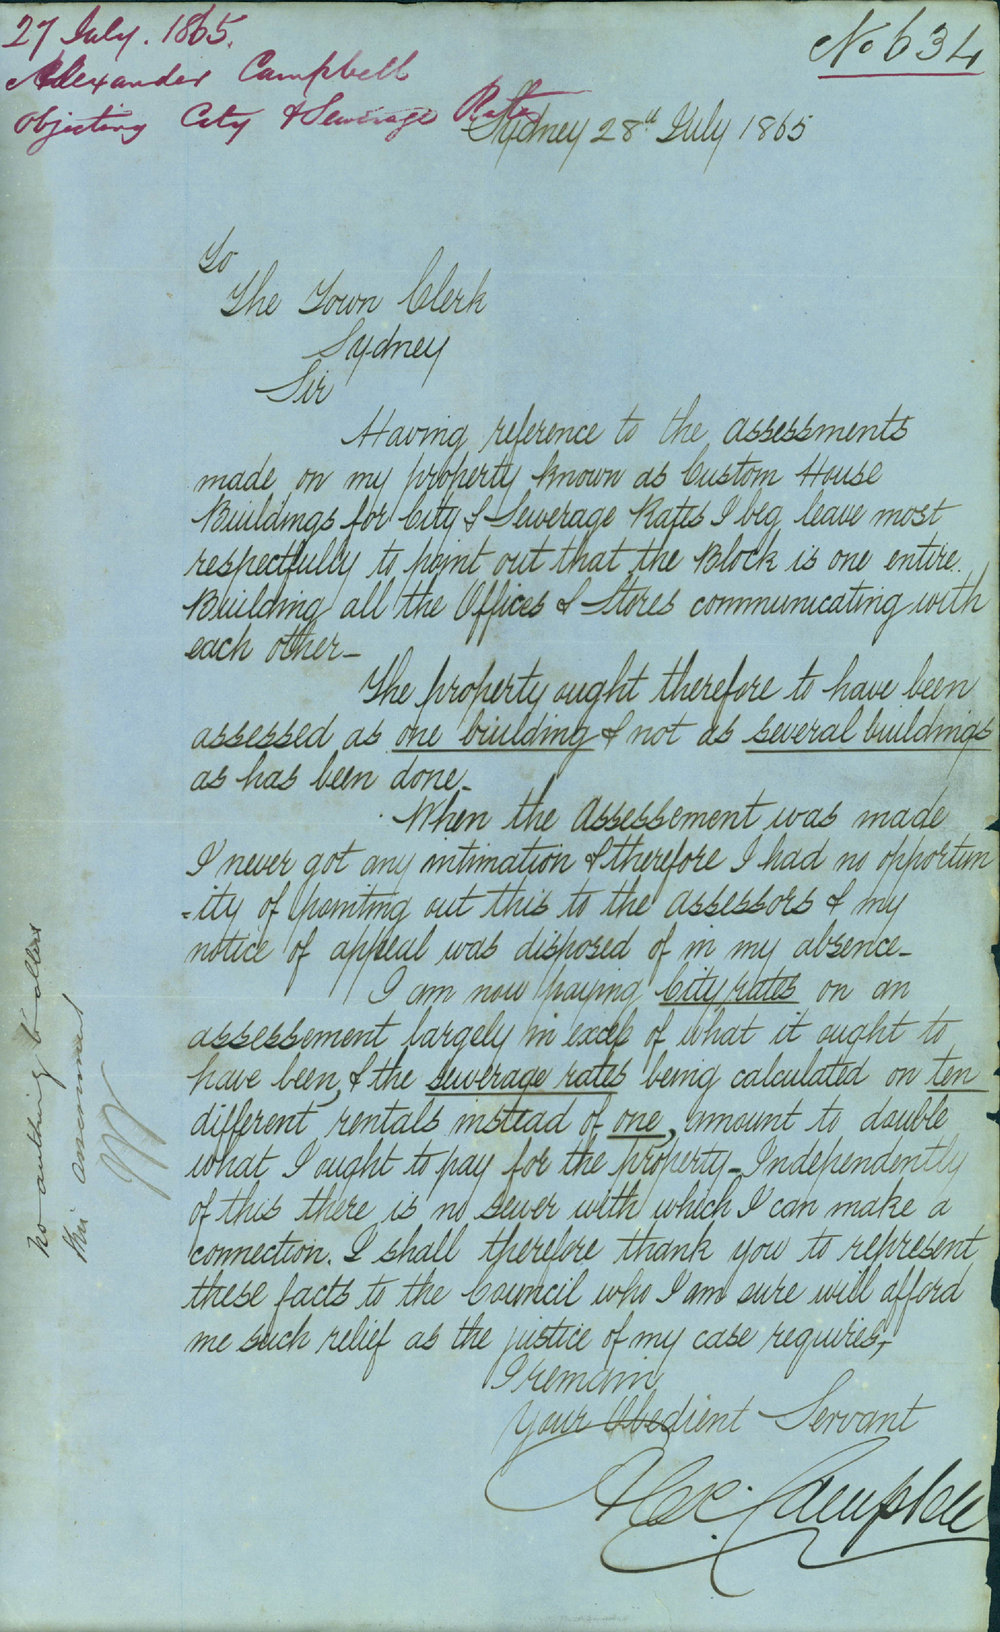 27 July. 1865.
Alexander Campbell
objecting City & Sewerage Rates
No 634
Sydney 28th July 1865
To
The Town Clerk
Sydney
Sir
Having reference to the assessments
made on my property known as Custom House
Buildings for City & Sewerage Rates I beg leave most
respectfully to point out that the Block is one entire
Building all the Offices & Stores communicating with
each other_
The property ought therefore to have been
assessed as one building & not as several buildings
as has been done_
When the Assessement was made
I never got any intimation & therefore I had no opportun
=ity of pointing out this to the assessors & my
notice of appeal was disposed of in my absence_
I am now paying City rates on an
assessement largely in excess of what it ought to
have been, & the sewerage rates being calculated on ten
different rentals instead of one, amount to double
what I ought to pay for the property_Independently
of this there is no sewer with which I can make a
connection. I shall therefore thank you to represent
these facts to the Council who I am sure will afford
me such relief as the justice of my case requires,
I remain
Your Obedient Servant
Alex. Campbell
No
this assessment